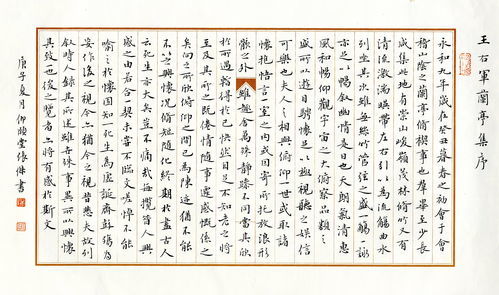 王右軍蘭亭集序
永和九年歲在癸丑暮春之初會于會
稽山陰之蘭亭脩稧事也羣賢畢至少長
咸集此地有崇山峻領茂林脩竹又有
清流激湍暎帶左右引以為流觴曲水
列坐其次雖無絲竹管弦之盛一觴一詠
亦足以暢敘幽情是日也天朗氣清惠
風和暢仰觀宇宙之大俯察品類之
盛所以遊目騁懷足以極視聽之娛信
可樂也夫人之相與俯仰一世或取諸
懷抱悟言一室之內或因寄所托放浪形
骸之外雖趣舍萬殊靜躁不同當其欣
於所遇暫得於己怏然自足不知老之將
至及其所之既倦情隨事遷感慨係之
矣向之所欣俯仰之間已為陳迹猶不能
不以之興懷況脩短隨化終期於盡古人
云死生亦大矣豈不痛哉每攬昔人興
感之由若合一契未嘗不臨文嗟悼不能
喻之於懷固知一死生為虛誕齊彭殤為
妄作後之視今亦猶今之視昔悲夫故列
敘時人錄其所述雖世殊事異所以興懷
其致一也後之覽者亦將有感於斯文
庚子夏月仰頤堂張傑書